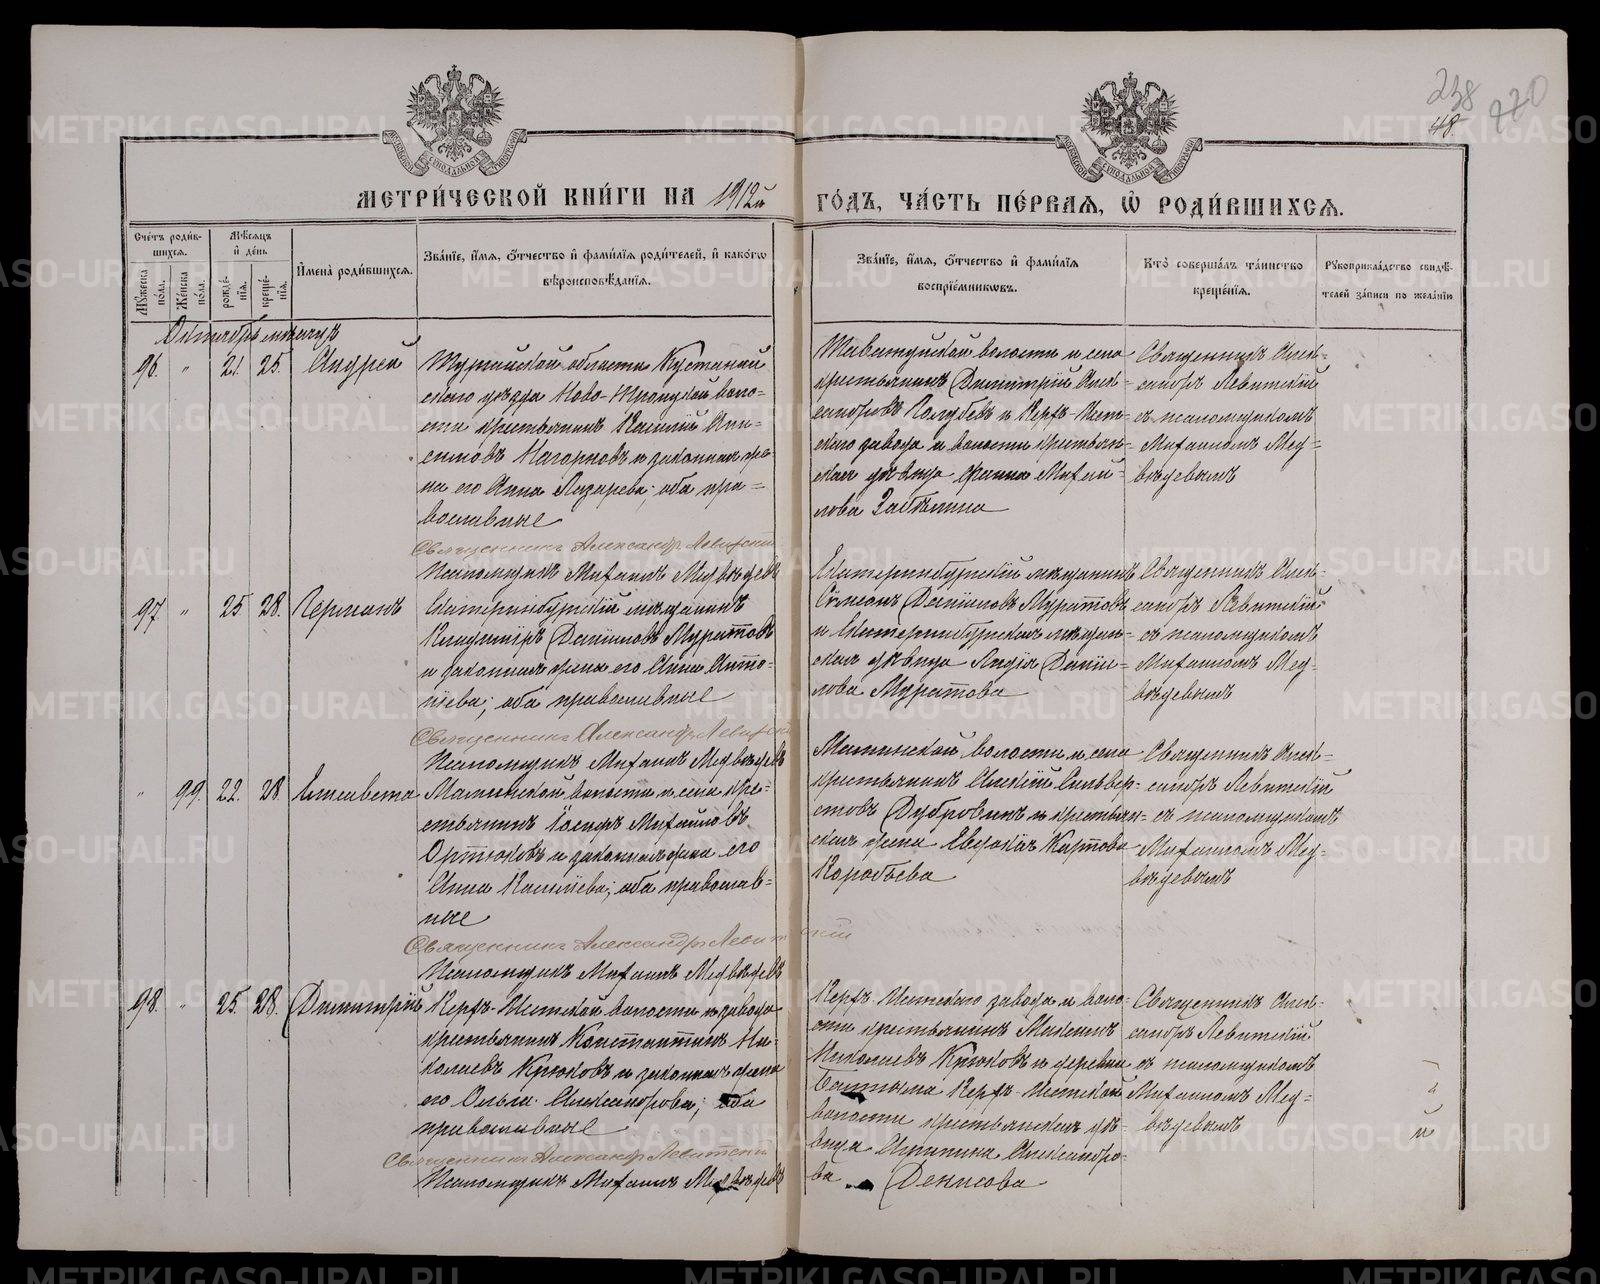 238
48.
270
МЕТРИ́ЧЕСКОЙ КНИ́ГИ НА 1912й ГО́ДЪ, ЧА́СТЬ ПЕ́РВАЯ, Ѡ РОДИ́ВШИХСЯ.
Сче́тъ роди́в-
шихся.
Мѣ́сяцъ
и де́нь
Му́жеска по́ла.
Же́нска по́ла.
рожде́-
нїя.
креще́-
нїя.
Имена̀ роди́вшихся.
Зва́нїе, и́мя, ѻ́тчество и фами́лїя роди́телей, и како́гѡ
вѣроисповѣ́данїя.
Зва́нїе, и́мя, ѻ́тчество и фами́лїя
воспрїе́мниковъ.
Кто̀ соверша́лъ та́инство
креще́нїя.
Рꙋкоприкла́дство свидѣ́-
телей за́писи по жела́нїю
Октябрь мѣсяцъ
96. " 21. 25. Андрей
Тургайской области Кустанай
скаго уѣзда Ново-Троицкой воло-
сти крестьянинъ Василій Ани-
симовъ Нагорновъ и законная же-
на его Анна Лазарева; оба пра-
вославные
Священникъ Александръ Левитский
Псаломщикъ Михаилъ Медвѣдевъ
Таватуйской волости и села
крестьянинъ Димитрій Алек-
сандровъ Голубевъ и Верхъ-Исет-
скаго завода и волости крестьян-
ская дѣвица Фаина Михаи-
лова Забѣлина
Священникъ Алек-
сандръ Левитскій
съ псаломщикомъ
Михаиломъ Мед-
вѣдевымъ
97 " 25 28. Германъ
Екатеринбургскій мѣщанинъ
Владиміръ Даніиловъ Муратовъ
и законная жена его Анна Анто-
ніева; оба православные
Священникъ Александръ Левитский
Псаломщикъ Михаилъ Медвѣдевъ
Екатеринбургскій мѣщанинъ
Сѷмеонъ Даніиловъ Муратовъ
и Екатеринбургская мѣщан-
ская дѣвица Лидія Даніи-
лова Муратова
Священникъ Алек-
сандръ Левитскій
съ псаломщикомъ
Михаиломъ Мед-
вѣдевымъ
" 99. 22. 28. Елисавета
Маминской волости и села кре-
стьянинъ Іосифъ Михаиловъ
Ортюковъ и законная жена его
Анна Василіева; оба православ-
ные
Священникъ Александръ Левитский
Псаломщикъ Михаилъ Медвѣдевъ
Маминской волости и села
крестьянинъ Алексій Сильвер-
стовъ Дубровинъ и крестьян-
ская жена Евдокія Карпова
Воробьева
Священникъ Алек-
сандръ Левитскій
съ псаломщикомъ
Михаиломъ Мед-
вѣдевымъ
98. " 25. 28. Димитрій
Верхъ-Исетской волости и завода
крестьянинъ Константинъ Ни-
колаевъ Крюковъ и законная жена
его Ольга Александрова; оба
православные
Священникъ Александръ Левитский
Псаломщикъ Михаилъ Медвѣдевъ
Верхъ-Исетскаго завода и воло-
сти крестьянинъ
Николаевъ Крюковъ и деревни
Верхъ-Исетской
волости крестьянская дѣ-
вица Агрипина Александро-
ва Денисова
Священникъ Алек-
сандръ Левитскій
съ псаломщикомъ
Михаиломъ Мед-
вѣдевымъ
METRIKI.GASO-URAL.RU